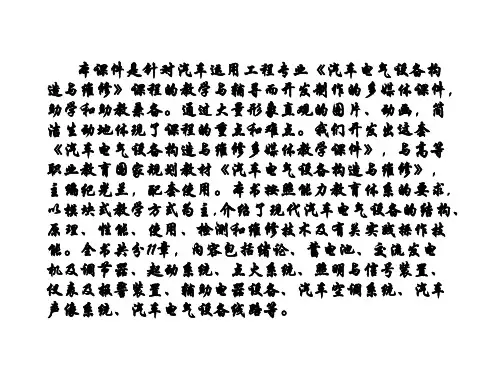 本课件是针对汽车运用工程专业《汽车电气设备构
造与维修》课程的教学与辅导而开发制作的多媒体课件,
助学和助教兼备。通过大量形象直观的图片、动画,简
洁生动地体现了课程的重点和难点。我们开发出这套
《汽车电气设备构造与维修多媒体教学课件》,与高等
职业教育国家规划教材《汽车电气设备构造与维修》,
主编纪光兰,配套使用。本书按照能力教育体系的要求,
以模块式教学方式为主,介绍了现代汽车电气设备的结构、
原理、性能、使用、检测和维修技术及有关实践操作技
能。全书共分11章,内容包括绪论、蓄电池、交流发电
机及调节器、起动系统、点火系统、照明与信号装置、
仪表及报警装置、辅助电器设备、汽车空调系统、汽车
声像系统、汽车电气设备线路等。